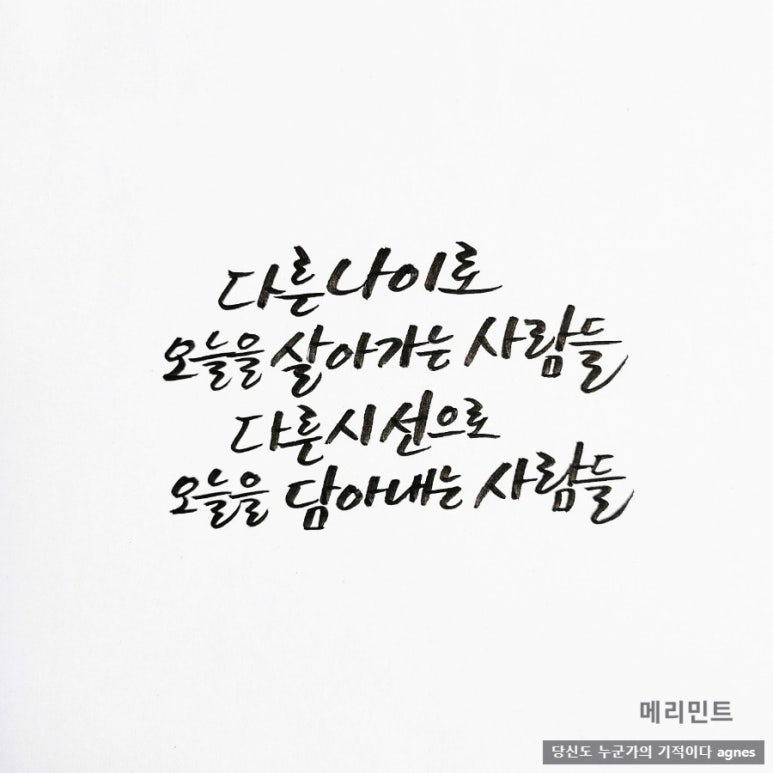 다른 나이로
오늘을 살아가는 사람들
다른 시선으로
오늘을 담아내는 사람들
메리민트
당신도 누군가의 기적이다 agnes